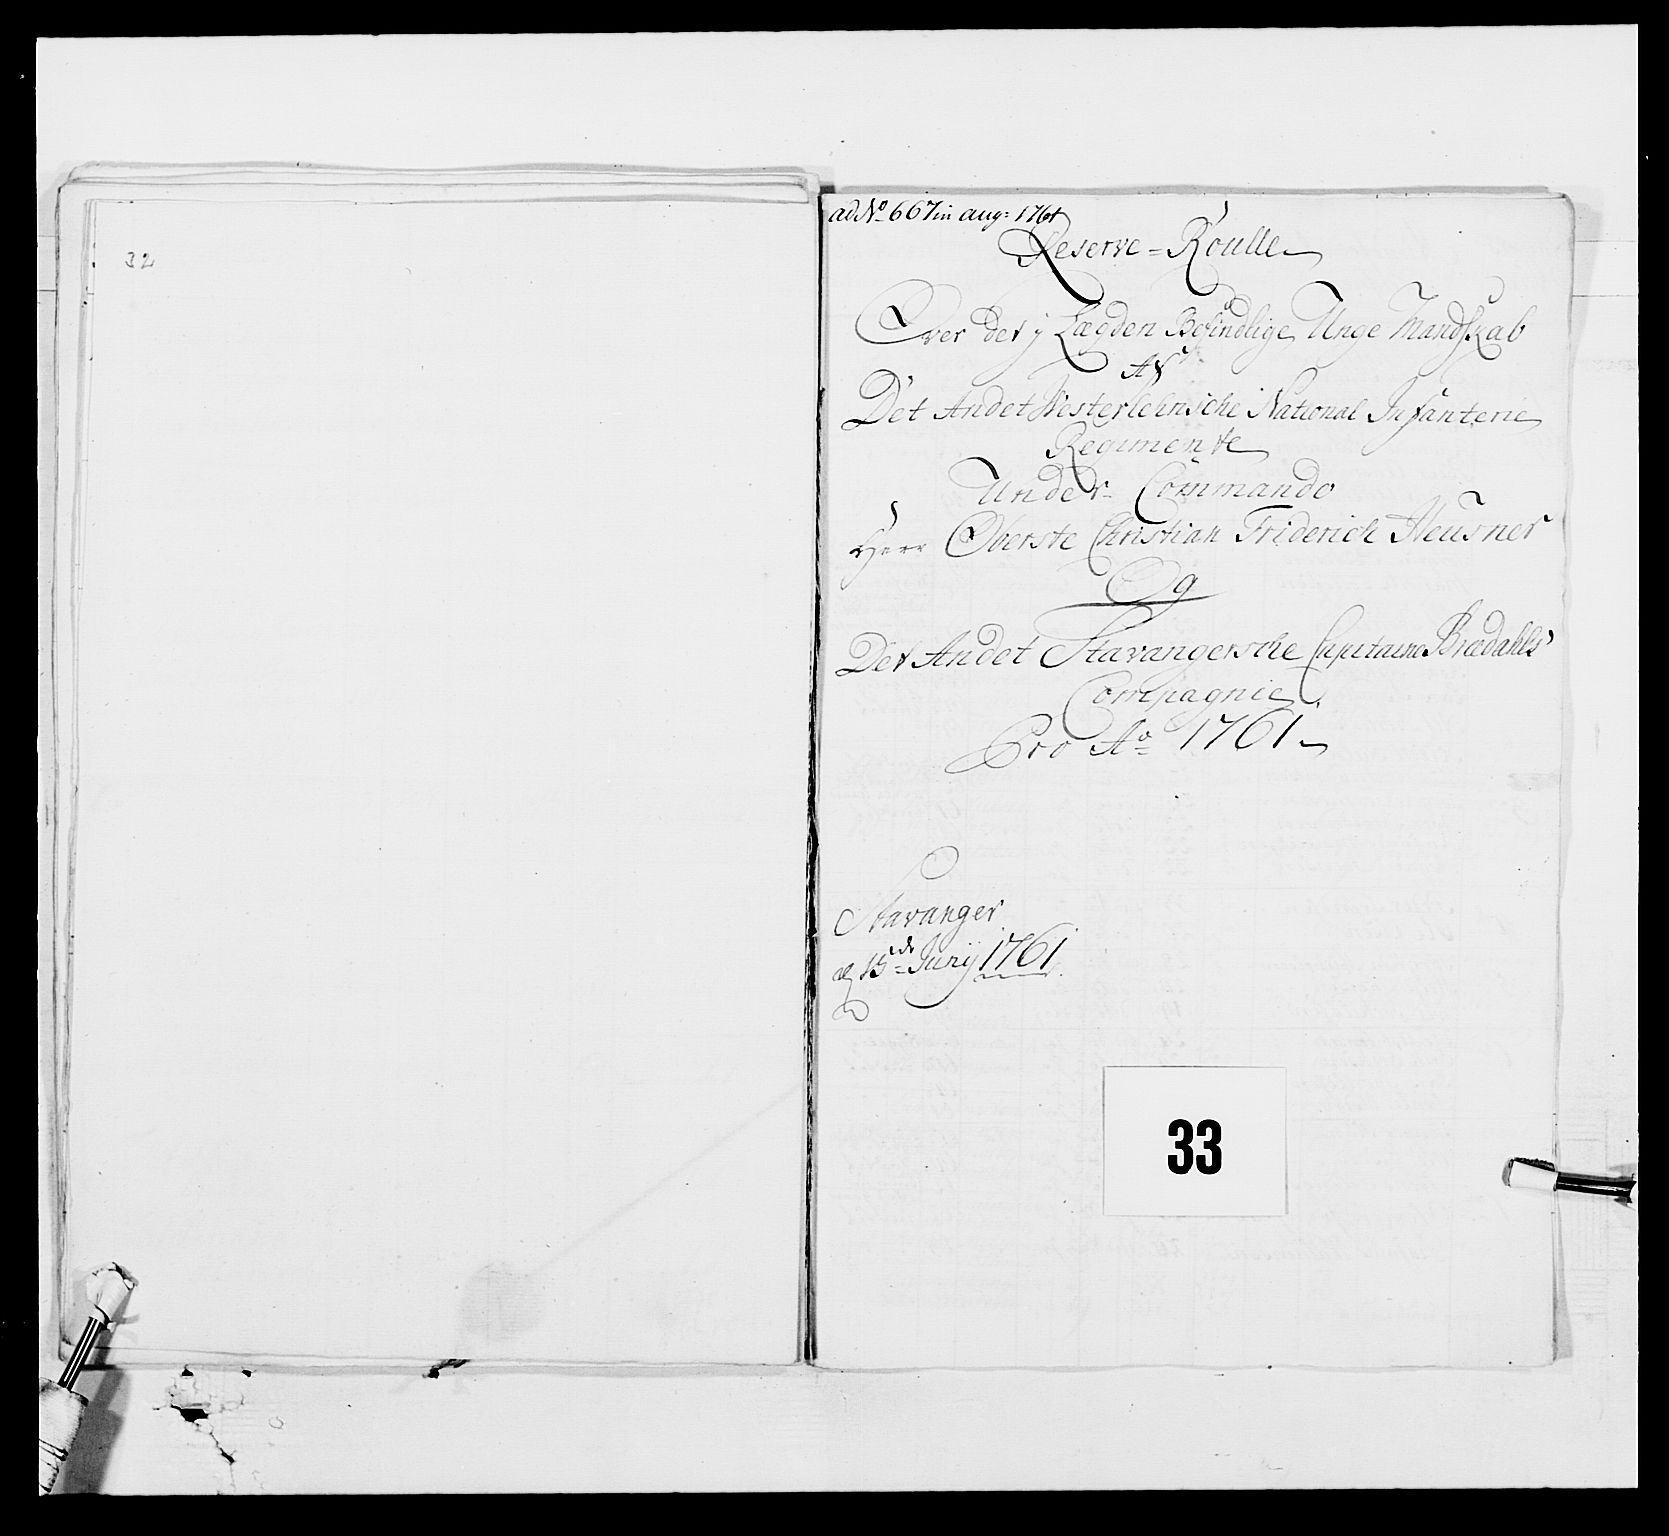 32
ad No 667 in aug: 1761
Reserve=Roulle
Over det j Lægden Befindlige Unge Mandskab
Af
Det Andet Westerlehnsche National Infanterie
Regimente
Under Commando
Herr Oberste Christian Friderich Heusner
Og
Det Andet Stavangersche Capitaine Brædahls
Compagnie
Pro Ao 1761
Stavanger
d 15de Junij 1761
33